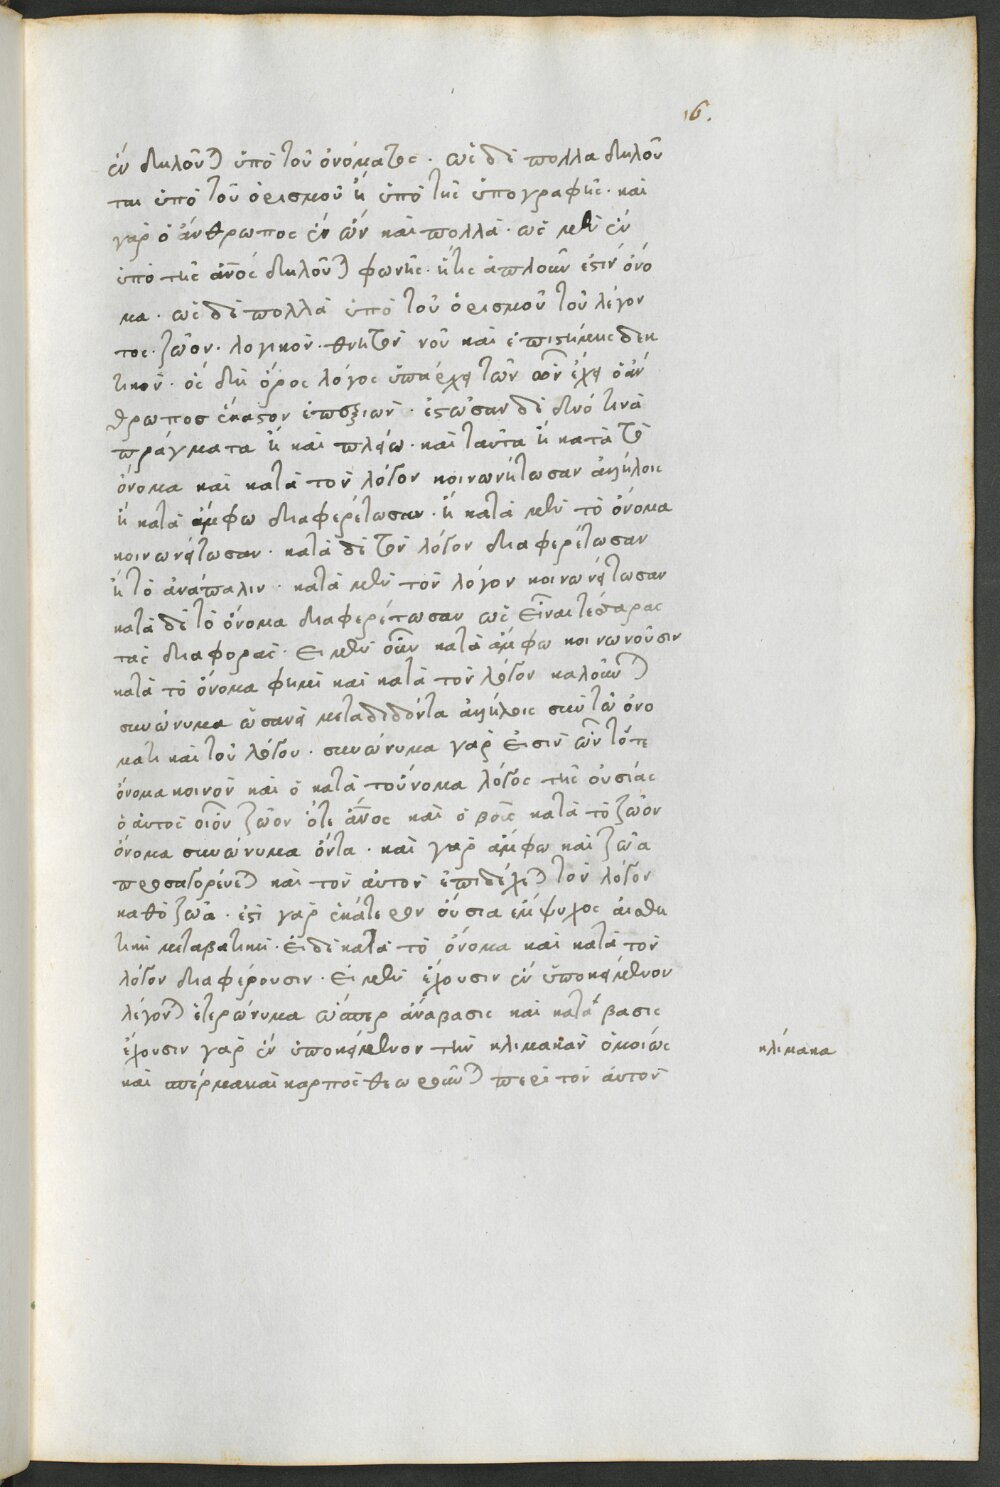 16.
ἓν δηλοῦται ὑπὸ τοῦ ὀνόματος · ὡς δὲ πολλα δηλοῦν
ται ὑπὸ τοῦ ὁρισμοῦ ἢ ὑπὸ τῆς ὑπογραφῆς · καὶ
γαρ ὁ ἄνθρωπος ἓν ὢν καὶ πολλά · ὡς μὲν ἓν
ὑπὸ τῆς ἄνος δηλοῦται φωνῆς · ἥτις ἁπλοῦν ἐστιν ὄνο
μα · ὡς δὲ πολλὰ ὑπὸ τοῦ ὁρισμοῦ τοῦ λέγον
τος · ζῶον · λογικὸν · θνητὸν νοῦ καὶ ἐπιστήμης δεκ
τικὸν · ὃς δὴ ὅρος λόγος ὑπάρχει τῶν ὧν ἔχει ὁ ἄν
θρωπος ἕκαστον ἐπεξιὼν · ἔστωσαν δὲ δύο τινὰ
πράγματα ἢ καὶ πλείω · καὶ ταῦτα ἢ κατὰ τὸ
ὄνομα καὶ κατὰ τον λόγον κοινωνήτωσαν ἀλλήλοις
ἢ κατὰ ἄμφω διαφερέτωσαν · ἢ κατὰ μὲν τὸ ὄνομα
κοινωνείτωσαν · κατὰ δὲ τὸν λόγον διαφερέτωσαν
ἢ τὸ ἀνάπαλιν · κατὰ μὲν τὸν λόγον κοινωνείτωσαν
κατὰ δὲ τὸ ὄνομα διαφερέτωσαν ὡς εἶναι τέσσαρας
τὰς διαφορὰς · Ει μὲν οὖν κατὰ ἄμφω κοινωνοῦσιν
κατὰ τὸ ὄνομα φημὶ καὶ κατὰ τὸν λόγον καλοῦνται
συνώνυμα ὡσανεὶ μεταδιδόντα ἀλλήλοις σὺν τῶ ὀνό
ματι καὶ τοῦ λόγου · συνώνυμα γαρ εἰσὶν ὧν τότε
ὄνομα κοινὸν καὶ ὁ κατὰ τοὔνομα λόγος τῆς οὐσίας
ὁ αὐτος οἷον ζῶον ὅτε ἄνος καὶ ὁ βοῦς κατὰ τὸ ζῶον
ὄνομα συνώνυμα ὄντα · καὶ γαρ ἄμφω καὶ ζῶα
προσαγορεύεται καὶ τὸν αὐτον ἐπιδέχεται τὸν λόγον
καθὸ ζῶα · ἔστι γαρ ἑκάτερον οὐσια ἔμψυχος αἰσθη
τικη μεταβατικὴ · Εἰ δὲ κατὰ τὸ ὄνομα καὶ κατὰ τὸν
λόγον διαφέρουσιν · Ει μὲν ἔχουσιν ἓν ὑποκείμενον
λέγονται ἑτερώνυμα ὥσπερ ἀνάβασις καὶ κατάβασις
ἔχουσιν γαρ ἓν ὑποκείμενον τὴν κλιμακαν ὁμοίως
καὶ σπέρμα καὶ καρπος θεωροῦνται περὶ τον αὐτον
κλίμακα